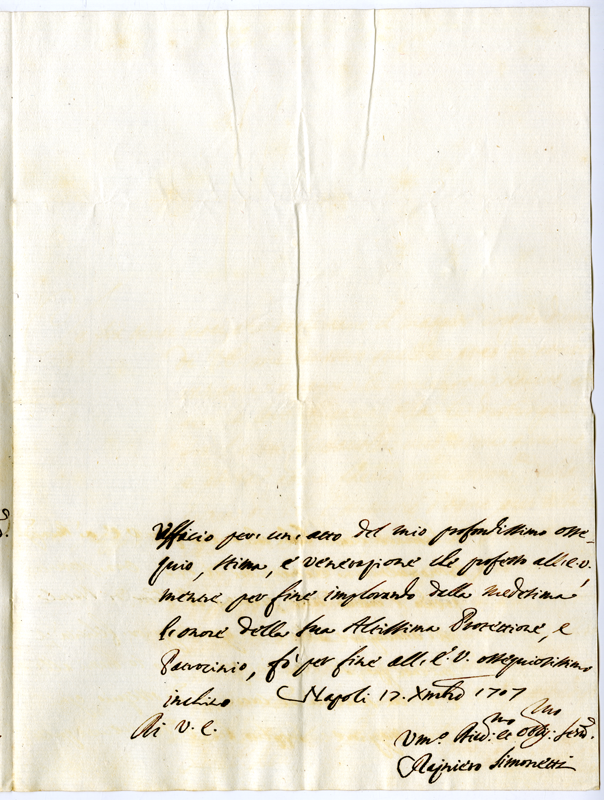 Ufficio per un' atto del mio profondissimo osse-
quio, stima, e venerazione che professo all' E.V.
mentre per fine implorando dalla medesima l'
honore della sua Altissima Protettione, e
Patrocinio, fò per fine all' E.V. ossequiosissimo
inchino Napoli 17. Xmbrẽ 1707
Di V. E.
Vmo. Diu.mo et Obbg.mo Seru.
Rajniero Simonetti